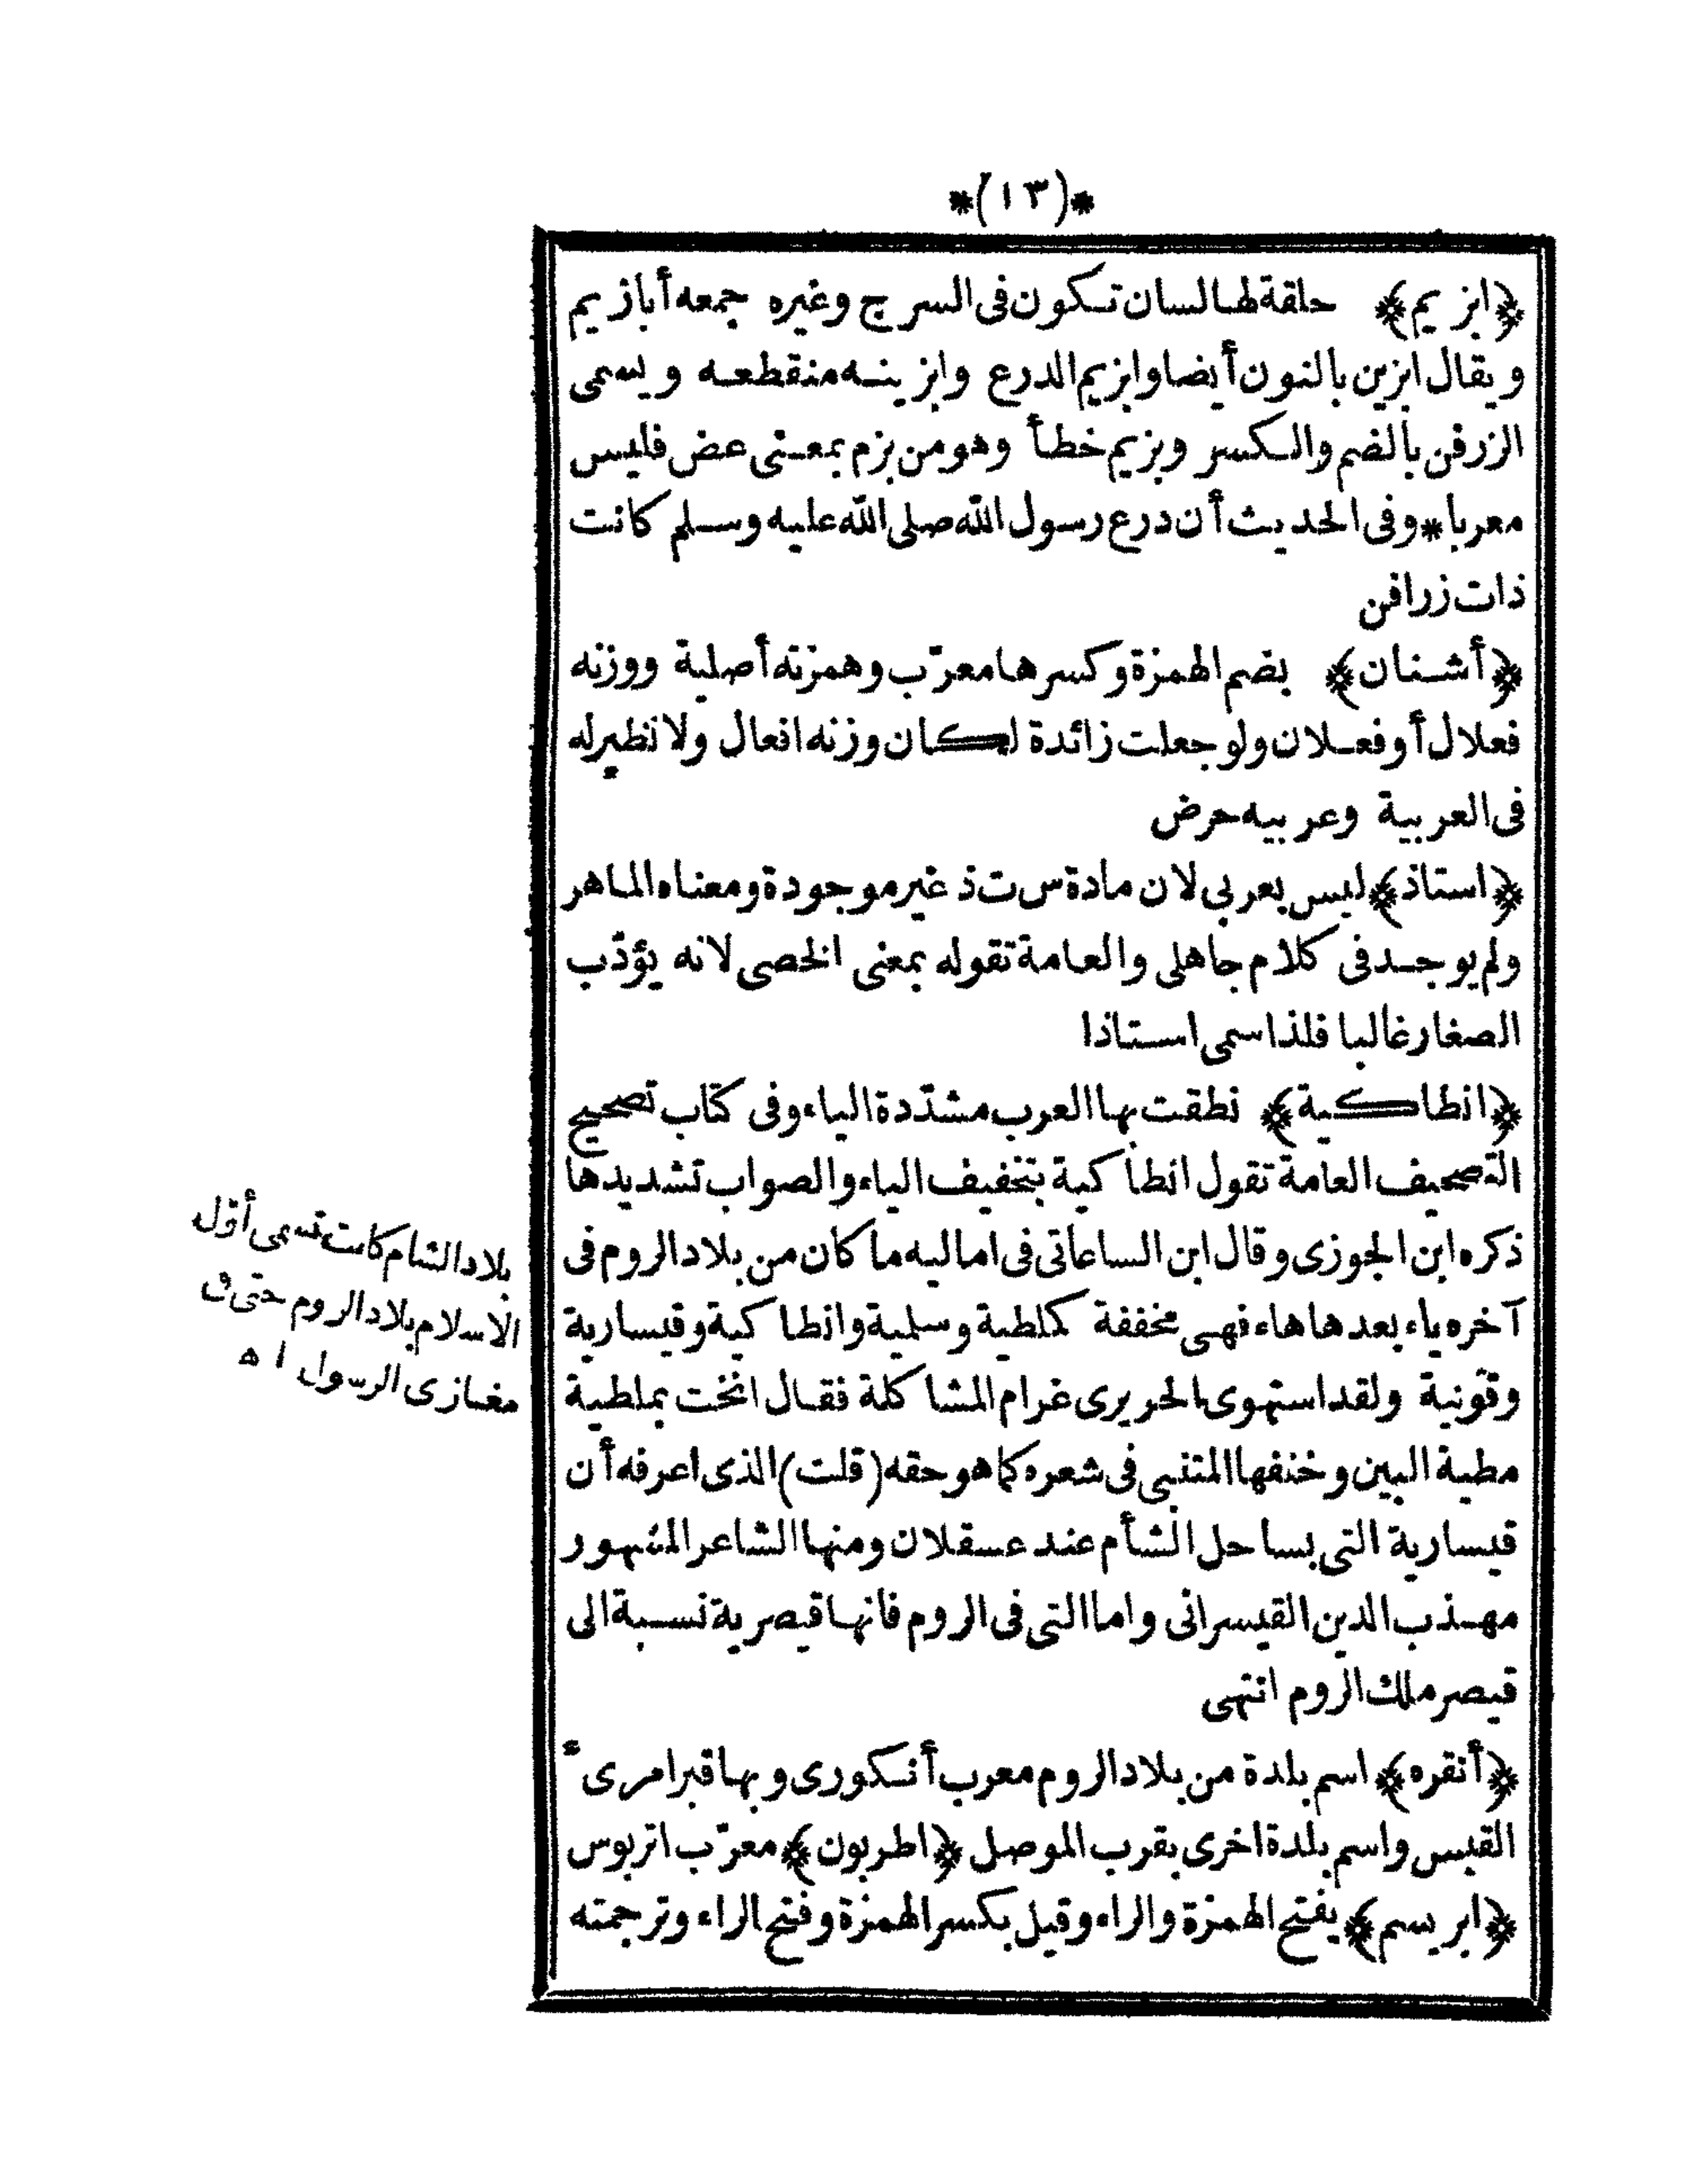 *(١٣)*
﴿ابزيم﴾ حلقة لها لسان تكون فى السرج وغيره جمعه أبازيم
ويقال ابزين بالنون أيضا وابزيم الدرع وابزينه منقطعه ويسمى
الزرفن بالضم والكسر وبزيم خطأ وهو من بزم بمعنى عض فليس
معربا * وفى الحديث أن درع رسول الله صلى الله عليه وسلم كانت
ذات زرافن
﴿أشنان﴾ بضم الهمزة وكسرها معرّب وهمزته أصلية ووزنه
فعلال أو فعلان ولو جعلت زائدة لكان وزنه افعال ولا نظير له
فى العربية وعربيه حرض
﴿استاذ﴾ ليس بعربى لان مادة س ت ذ غير موجودة ومعناه الماهر
ولم يوجد فى كلام جاهلى والعامة تقوله بمعنى الخصى لانه يؤدّب
الصغار غالبا فلذا سمى استاذا
﴿انطاكية﴾ نطقت بها العرب مشدّدة الياء وفى كتاب تصحيح
التصحيف العامة تقول انطاكية بتخفيف الياء والصواب تشديدها
ذكره ابن الجوزى وقال ابن الساعاتى فى اماليه ما كان من بلاد الروم فى
آخره ياء بعدها هاء فهى مخففة كملطية وسلمية وانطاكية وقيسارية
وقونية ولقد استهوى الحريرى غرام المشاكلة فقال انخت بملطية
مطية البين وخنفها المتنبى فى شعره كما هو حقه (قلت) الذى اعرفه أن
قيسارية التى بساحل الشأم عند عسقلان ومنها الشاعر المشهور
مهذب الدين القيسرانى واما التى فى الروم فانها قيصرية نسبة الى
قيصر ملك الروم انتهى
﴿أنقره﴾ اسم بلدة من بلاد الروم معرب أنكورى وبها قبر امرىء
القيس واسم بلدة اخرى بقرب الموصل ﴿اطربون﴾ معرّب اتربوس
﴿ابريسم﴾ بفتح الهمزة والراء وقيل بكسر الهمزة وفتح الراء وترجمته
بلاد الشام كانت تسمى أوّل
الاسلام بلاد الروم حتى فى
مغازى الرسول اه